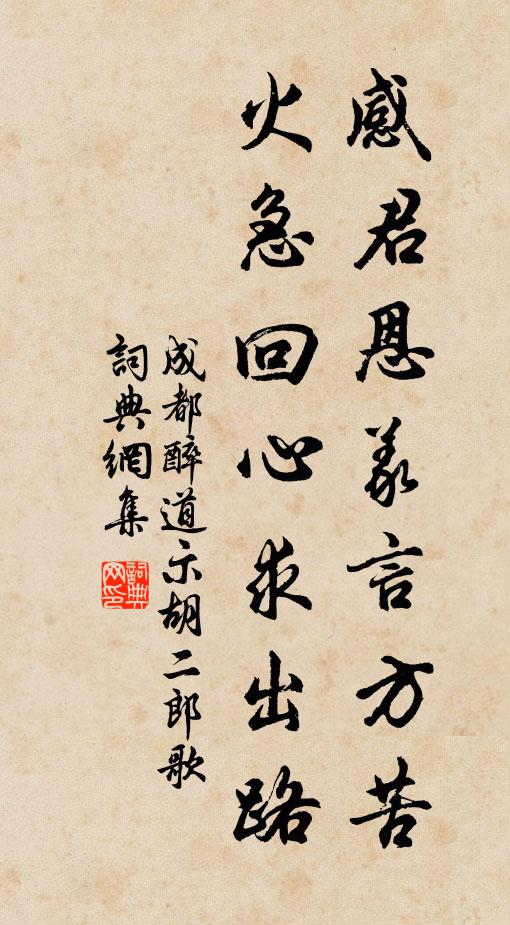 感君恩義言方苦
火急回心求出路
成都醉道示胡二郎歌
詞典網集
詞典
网印